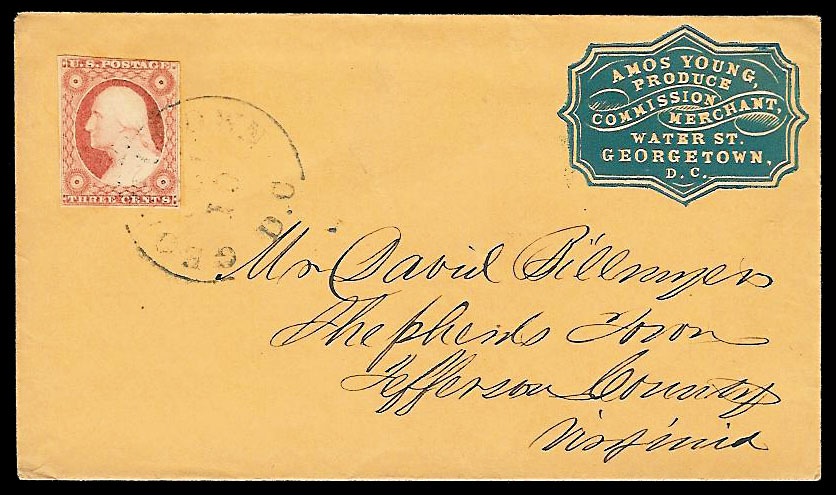 U.S. POSTAGE
THREE CENTS
D.C
AMOS YOUNG,
PRODUCE
COMMISSION
MERCHANT,
WATER ST.
GEORGETOWN,
D.C.
Mr David Billmyer
Shepherds Town
Jefferson County
Virginia